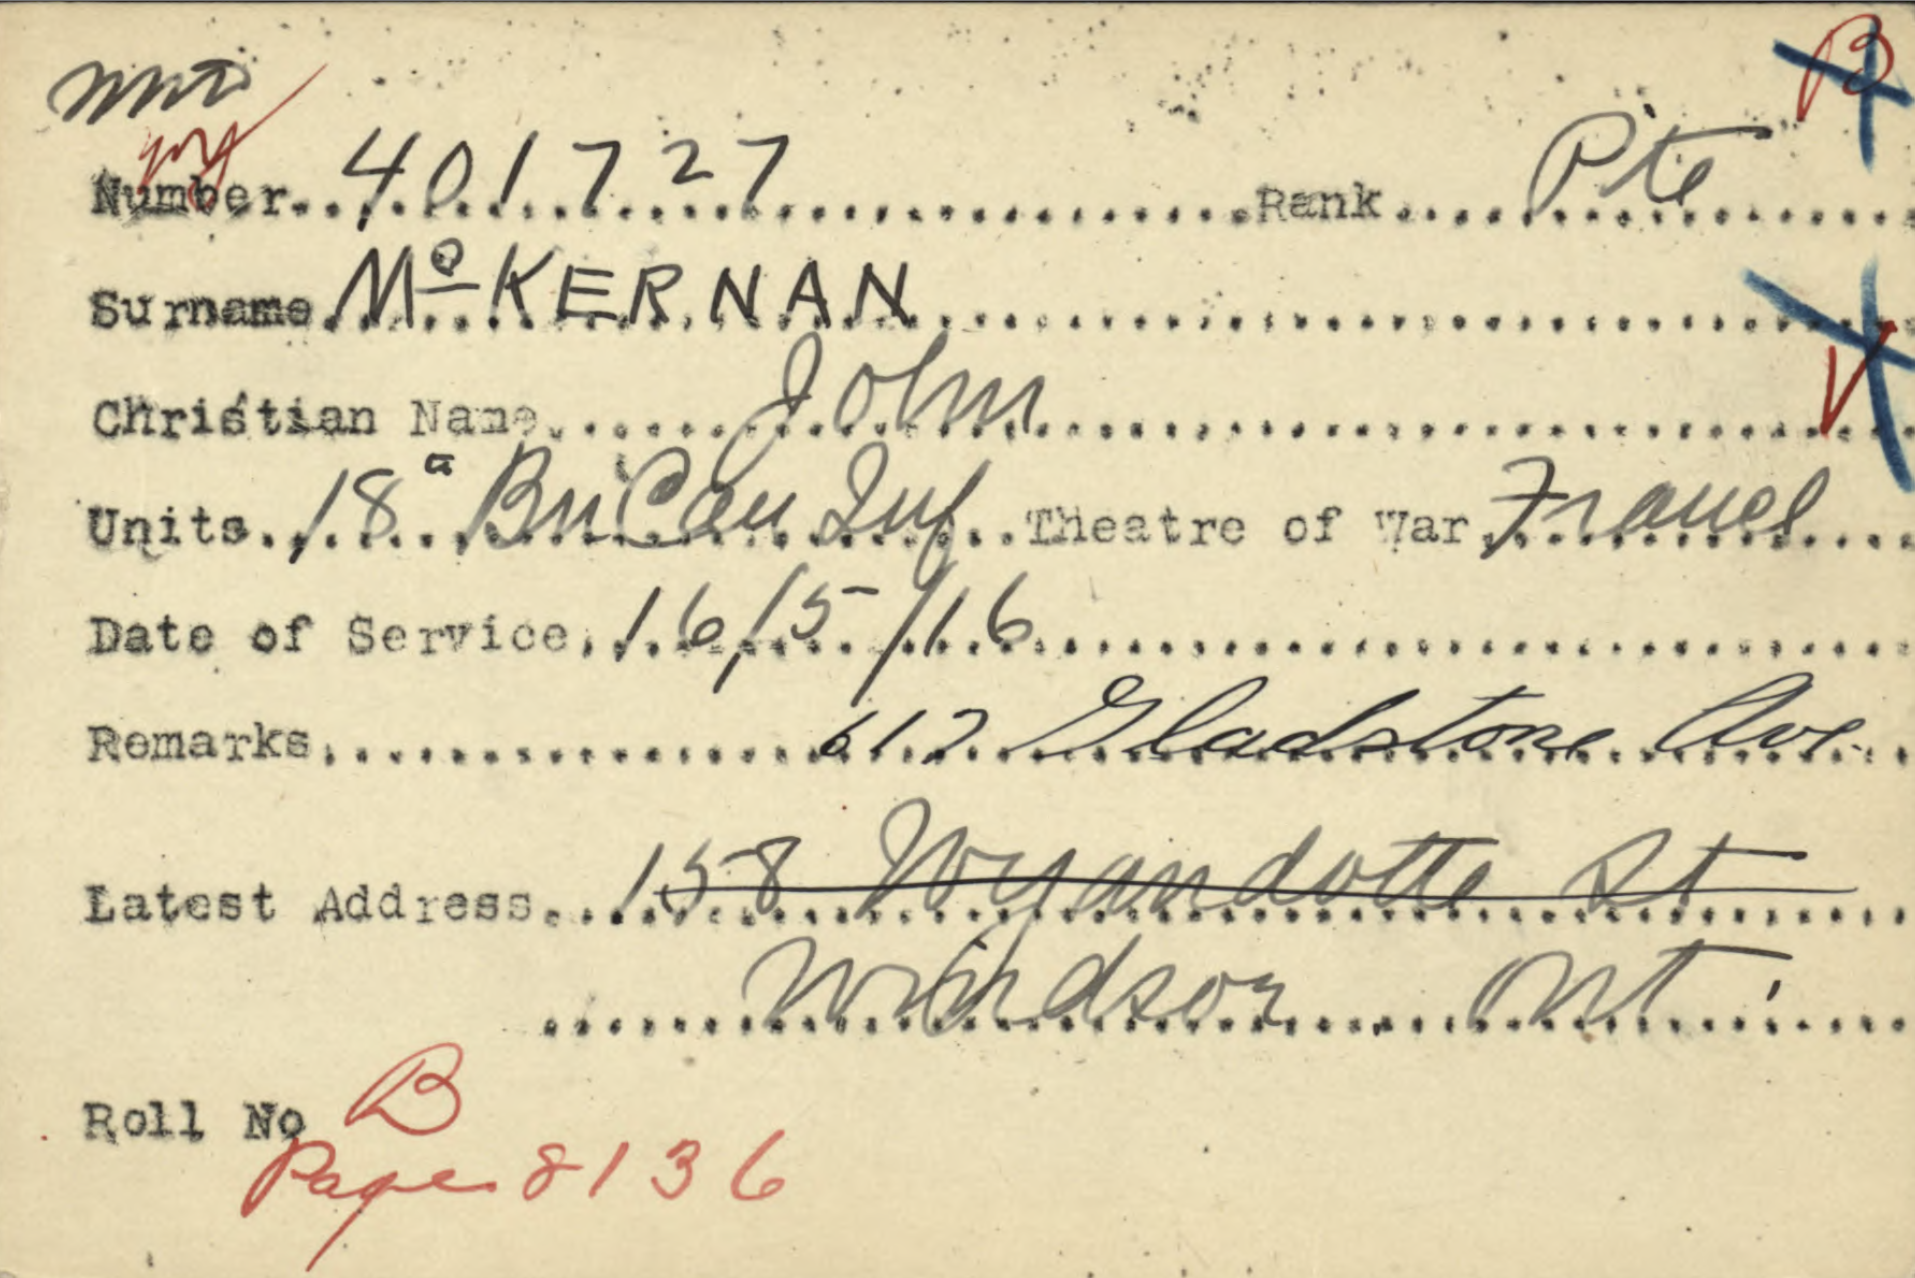 B
Number 401727 Rank Pte
Surname McKERNAN
Christian Name John
Units 18 Bn Can Inf Theatre of War France
Date of Service 16/5/16
Remarks 612 Gladstone Ave
Latest Address 158 Wyandotte St
Windsor Ont
Roll No B
Page 8136